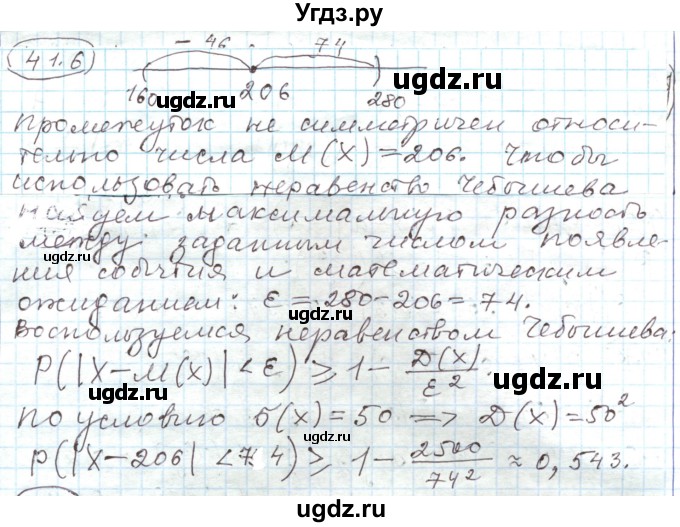 Угдз.ру
41.6
- 46
74
160
206
280
ugdz.ru
ugdz.ru
ugdz.ru
Промежуток не симметричен относи-
тельно числа M(X)=206. Чтобы
использовать неравенство Чебышева
найдем максимальную разность
между заданным числом появле-
ния события и математическим
ожиданием: ε = 280-206 = 74.
Воспользуемся неравенством Чебышева:
P(|X-M(X)|<ε) ⩾ 1- D(X)/ε²
По условию σ(X)=50 => D(X)=50²
P(|X-206|<74) ⩾ 1- 2500/74² ≈ 0,543.